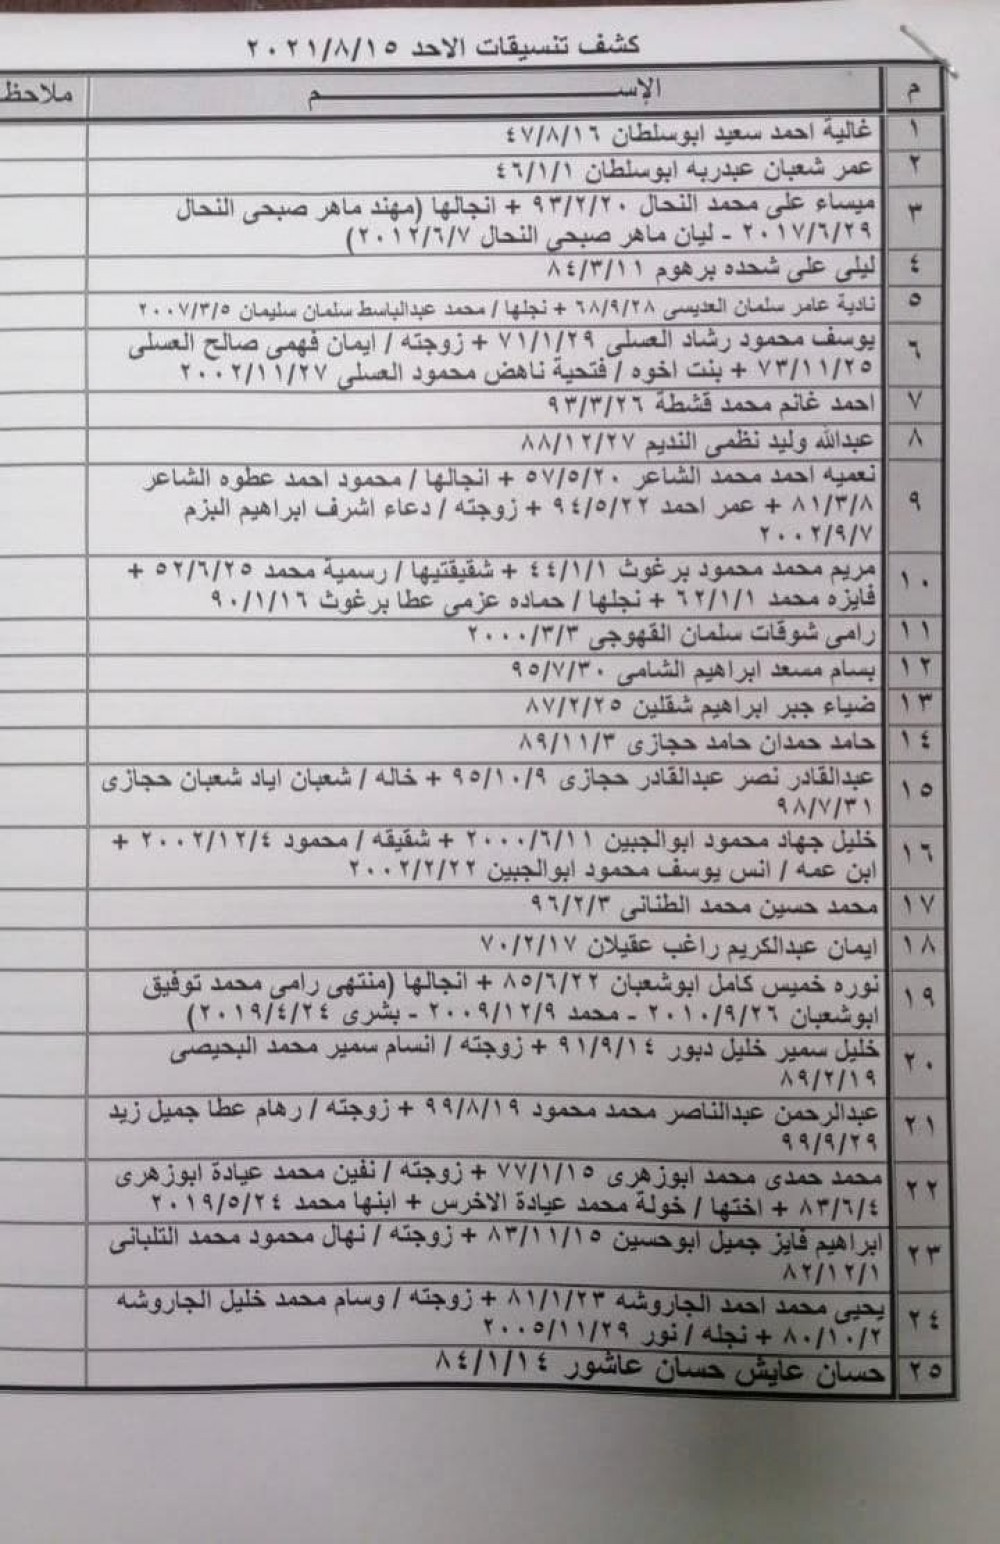 كشف تنسيقات الاحد ٢٠٢١/٨/١٥
م الإســـــــــــــــــــــم ملاحظ
١ غالية احمد سعيد ابوسلطان ٤٧/٨/١٦
٢ عمر شعبان عبدربه ابوسلطان ٤٦/١/١
٣ ميساء على محمد النحال ٩٣/٢/٢٠ + انجالها (مهند ماهر صبحى النحال
٢٠١٧/٦/٢٩ - ليان ماهر صبحي النحال ٢٠١٢/٦/٧)
٤ ليلى على شحده برهوم ٨٤/٣/١١
٥ نادية عامر سلمان العديسى ٦٨/٩/٢٨ + نجلها / محمد عبدالباسط سلمان سليمان ٢٠٠٧/٣/٥
٦ يوسف محمود رشاد العسلى ٧١/١/٢٩ + زوجته / ايمان فهمى صالح العسلى
٧٣/١١/٢٥ + بنت اخوه / فتحية ناهض محمود العسلى ٢٠٠٢/١١/٢٧
٧ احمد غانم محمد قشطة ٩٣/٣/٢٦
٨ عبدالله وليد نظمى النديم ٨٨/١٢/٢٧
٩ نعميه احمد محمد الشاعر ٥٧/٥/٢٠ + انجالها / محمود احمد عطوه الشاعر
٨١/٣/٨ + عمر احمد ٩٤/٥/٢٢ + زوجته / دعاء اشرف ابراهيم البزم
٢٠٠٢/٩/٧
١٠ مريم محمد محمود برغوث ٤٤/١/١ + شقيقتيها / رسمية محمد ٥٢/٦/٢٥ +
فايزه محمد ٦٢/١/١ + نجلها / حماده عزمى عطا برغوث ٩٠/١/١٦
١١ رامى شوقات سلمان القهوجى ٢٠٠٠/٣/٣
١٢ بسام مسعد ابراهيم الشامى ٩٥/٧/٣٠
١٣ ضياء جبر ابراهيم شقلين ٨٧/٢/٢٥
١٤ حامد حمدان حامد حجازى ٨٩/١١/٣
١٥ عبدالقادر نصر عبدالقادر حجازى ٩٥/١٠/٩ + خاله / شعبان اياد شعبان حجازى
٩٨/٧/٣١
١٦ خليل جهاد محمود ابوالجبين ٢٠٠٠/٦/١١ + شقيقه / محمود ٢٠٠٢/١٢/٤ +
ابن عمه / انس يوسف محمود ابوالجبين ٢٠٠٢/٢/٢٢
١٧ محمد حسين محمد الطنانى ٩٦/٢/٣
١٨ ايمان عبدالكريم راغب عقيلان ٧٠/٢/١٧
١٩ نوره خميس كامل ابوشعبان ٨٥/٦/٢٢ + انجالها (منتهى رامى محمد توفيق
ابوشعبان ٢٠١٠/٩/٢٦ - محمد ٢٠٠٩/١٢/٩ - بشرى ٢٠١٩/٤/٢٤)
٢٠ خليل سمير خليل دبور ٩١/٩/١٤ + زوجته / انسام سمير محمد البحيصى
٨٩/٢/١٩
٢١ عبدالرحمن عبدالناصر محمد محمود ٩٩/٨/١٩ + زوجته / رهام عطا جميل زيد
٩٩/٩/٢٩
٢٢ محمد حمدى محمد ابوزهرى ٧٧/١/١٥ + زوجته / نفين محمد عيادة ابوزهرى
٨٣/٦/٤ + اختها / خولة محمد عيادة الاخرس + ابنها محمد ٢٠١٩/٥/٢٤
٢٣ ابراهيم فايز جميل ابوحسين ٨٣/١١/١٥ + زوجته / نهال محمود محمد التلبانى
٨٢/١٢/١
٢٤ يحيى محمد احمد الجاروشه ٨١/١/٢٣ + زوجته / وسام محمد خليل الجاروشه
٨٠/١٠/٢ + نجله / نور ٢٠٠٥/١١/٢٩
٢٥ حسان عايش حسان عاشور ٨٤/١/١٤